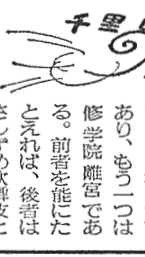 千里
あり、もう一つは
修学院離宮であ
る。前者を能にた
とえれば、後者は
さしずめ歌舞伎に